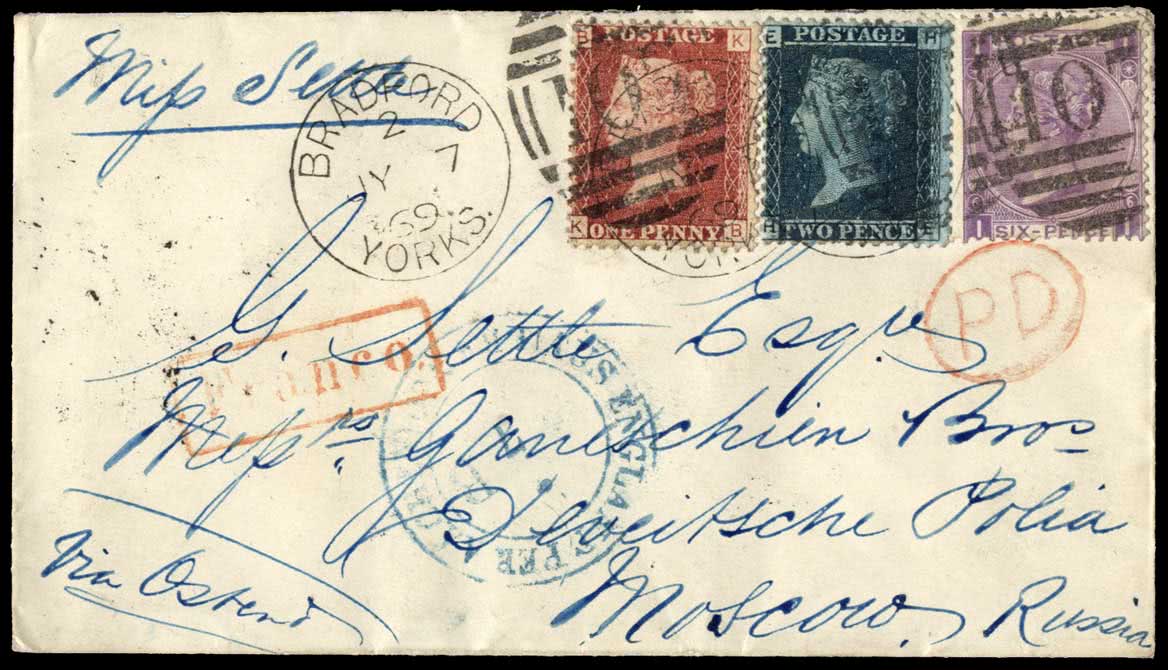 Miss Settle
BRADFORD
2
JY 7
69
YORKS.
B K
POSTAGE
ONE PENNY
K B
E H
POSTAGE
TWO PENCE
H E
POSTAGE
SIX-PENCE
PD
Franco.
G. Settle Esqre
Messrs Ganeschien Bros
Deutsche Polia
Moscow, Russia
Via Ostend
ENGLAND PER